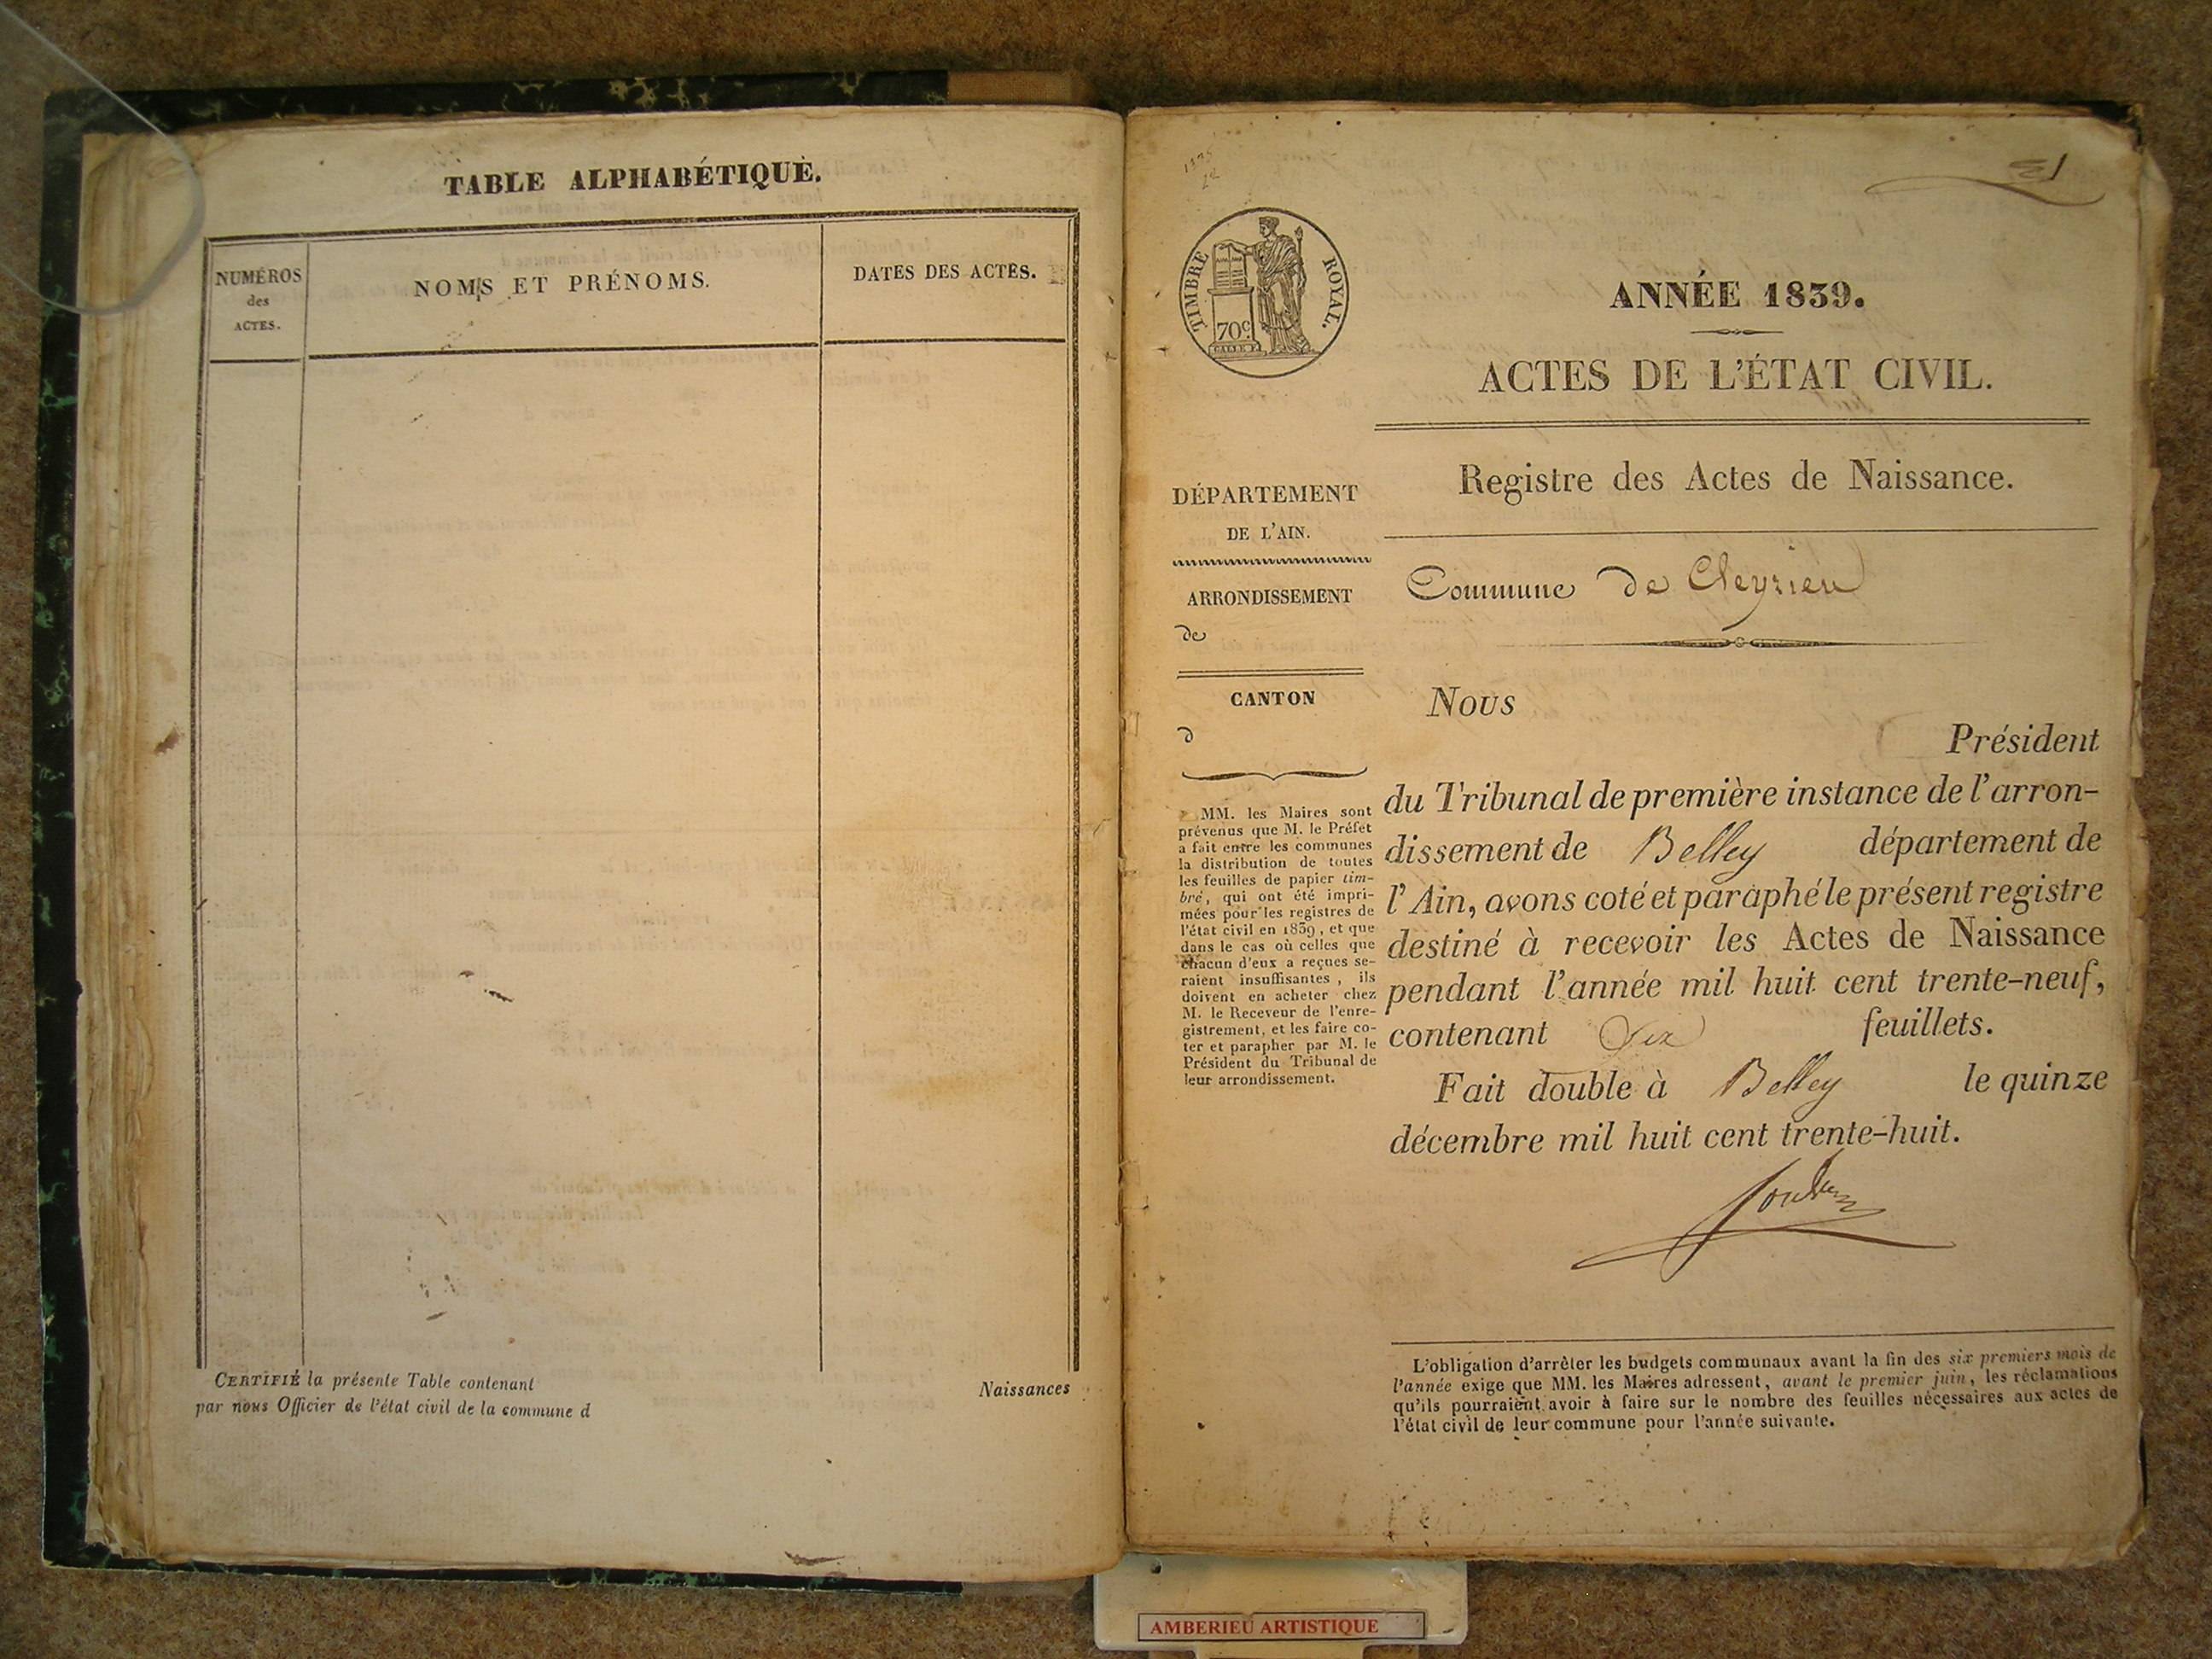 TABLE ALPHABÉTIQUE.
NUMÉROS
des
ACTES.
NOMS ET PRÉNOMS.
DATES DES ACTES.
CERTIFIÉ la présente Table contenant
Naissances
par nous Officier de l'état civil de la commune d
TIMBRE ROYAL.
70c.
ANNÉE 1839.
ACTES DE L'ÉTAT CIVIL.
Registre des Actes de Naissance.
DÉPARTEMENT
DE L'AIN.
ARRONDISSEMENT
de
CANTON
d
MM. les Maires sont
prévenus que M. le Préfet
a fait entre les communes
la distribution de toutes
les feuilles de papier tim-
bré, qui ont été impri-
mées pour les registres de
l'état civil en 1839, et que
dans le cas où celles que
chacun d'eux a reçues se-
raient insuffisantes, ils
doivent en acheter chez
M. le Receveur de l'enre-
gistrement, et les faire co-
ter et parapher par M. le
Président du Tribunal de
leur arrondissement.
Commune de Cleyzieu
Nous
Président
du Tribunal de première instance de l'arron-
dissement de Belley département de
l'Ain, avons coté et paraphé le présent registre
destiné à recevoir les Actes de Naissance
pendant l'année mil huit cent trente-neuf,
contenant Six feuillets.
Fait double à Belley le quinze
décembre mil huit cent trente-huit.
L'obligation d'arrêter les budgets communaux avant la fin des six premiers mois de
l'année exige que MM. les Maires adressent, avant le premier juin, les réclamations
qu'ils pourraient avoir à faire sur le nombre des feuilles nécessaires aux actes de
l'état civil de leur commune pour l'année suivante.
AMBERIEU ARTISTIQUE